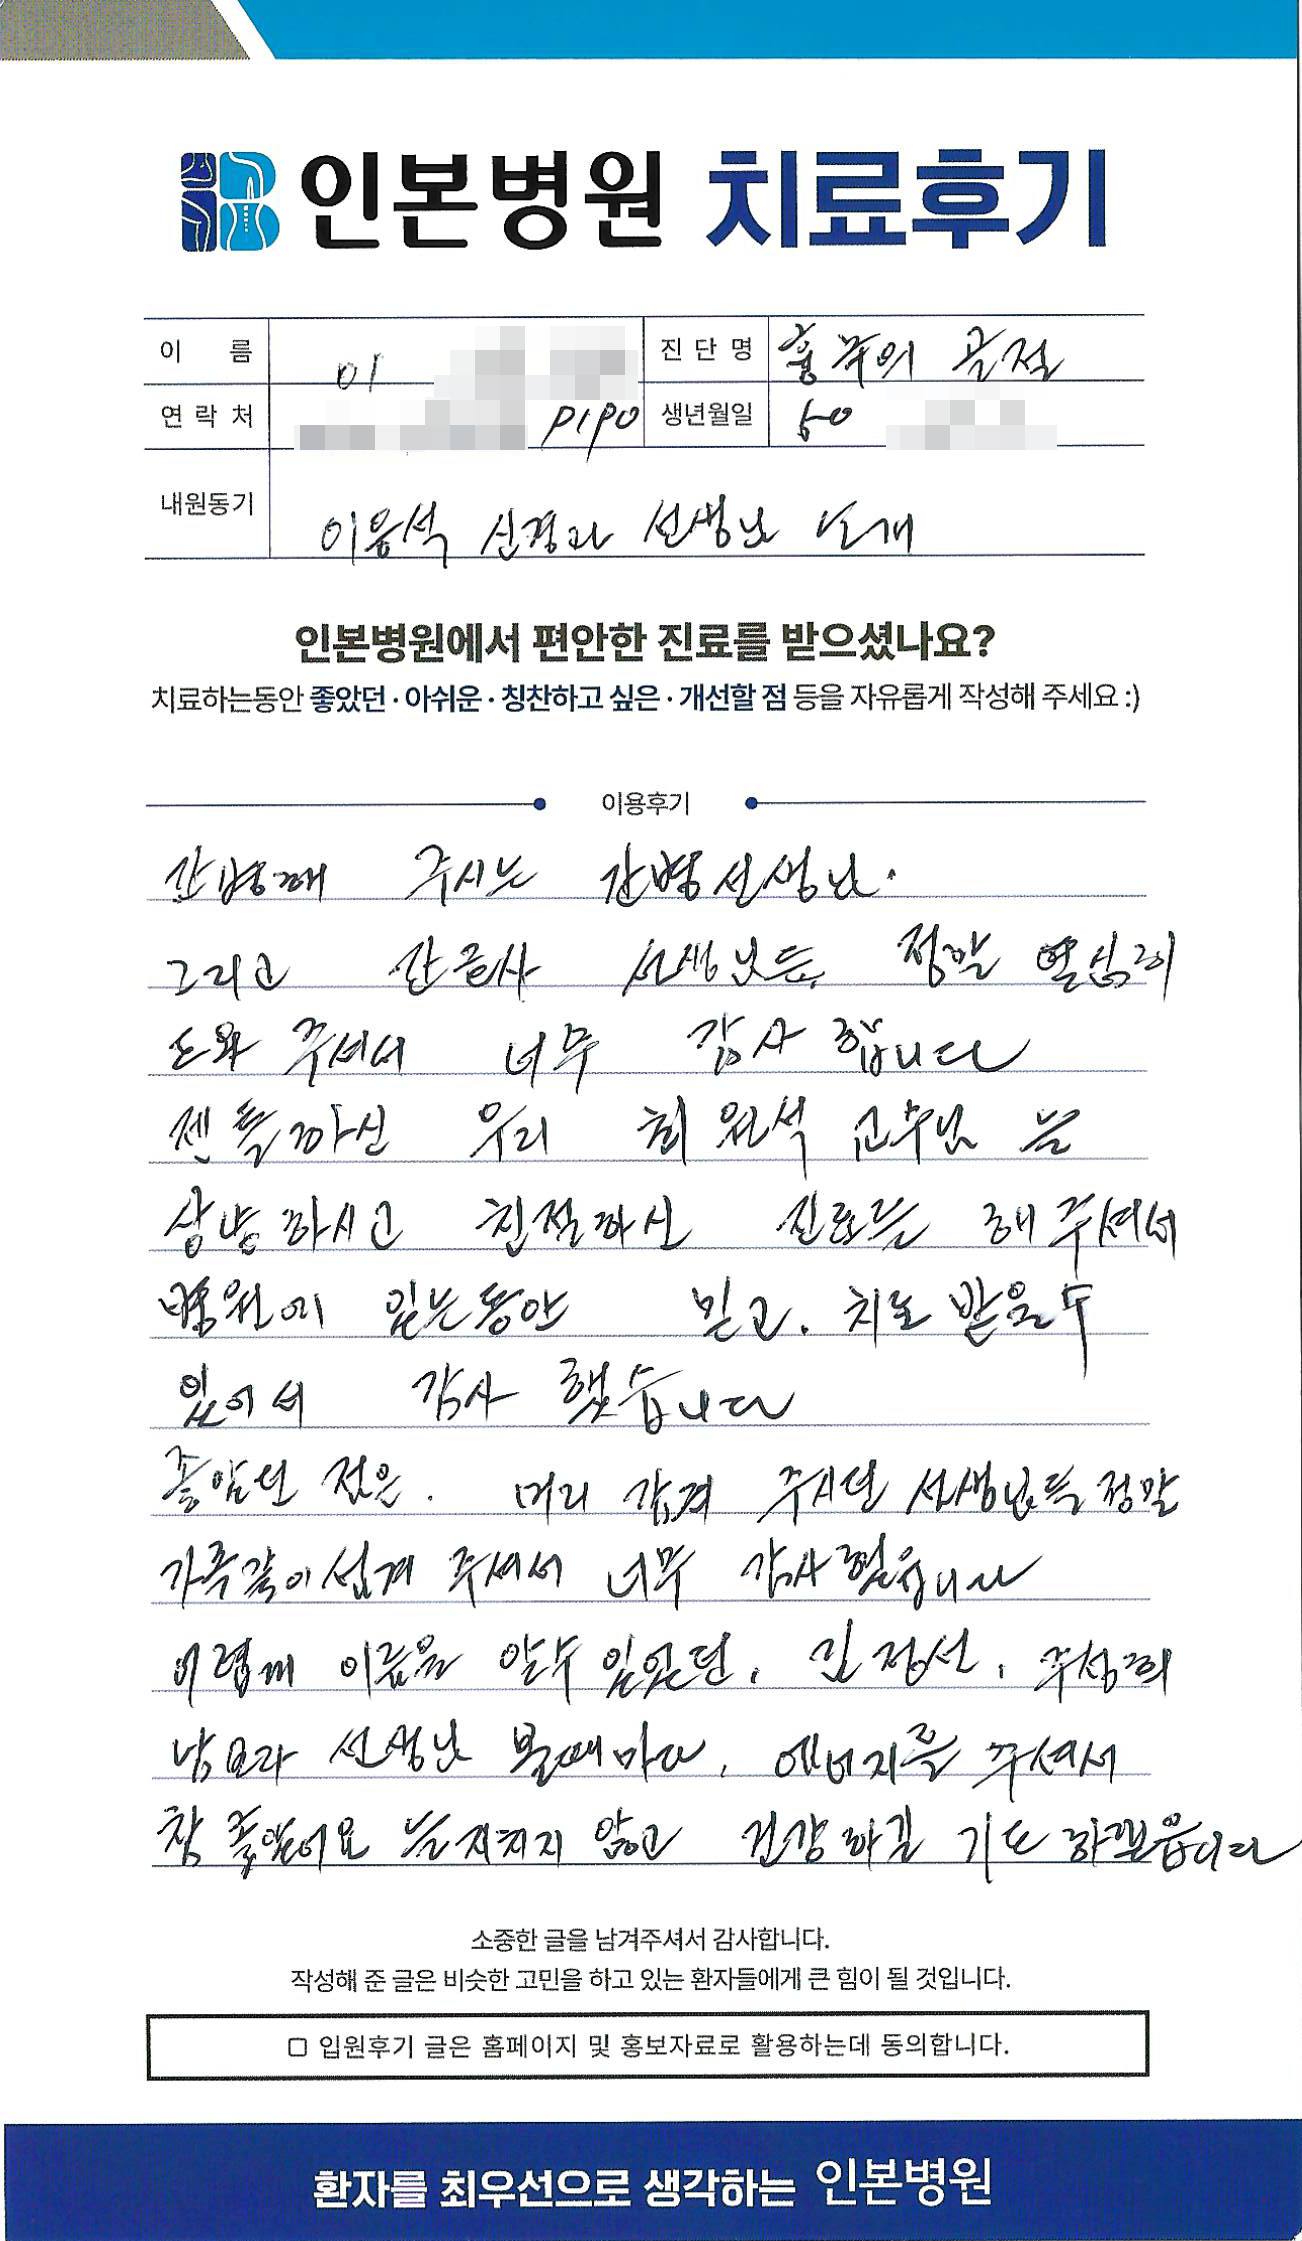 인본병원 치료후기
이 름 이 진 단 명 흉추의 골절
연 락 처 생년월일 50
내원동기 이웅석 신경과 선생님 소개
인본병원에서 편안한 진료를 받으셨나요?
치료하는동안 좋았던 · 아쉬운 · 칭찬하고 싶은 · 개선할 점 등을 자유롭게 작성해 주세요 :)
이용후기
간병해 주시는 간병선생님.
그리고 간호사 선생님들, 정말 열심히
도와 주셔서 너무 감사 합니다
젠틀하신 우리 최원석 교수님 는
상냥하시고 친절하신 진료를 해 주셔서
병원에 있는동안 믿고. 치료 받을수
있어서 감사 했습니다
좋았던 점은. 머리 감겨 주시던 선생님들 정말
가족같이 섬겨 주셔서 너무 감사했읍니다
어렵게 이름을 알수 있었던, 김정선, 주성희
남요라 선생님 볼때마다, 에너지를 주셔서
참 좋았어요 늘 지치지 않고 건강하길 기도 하겠읍니다
소중한 글을 남겨주셔서 감사합니다.
작성해 준 글은 비슷한 고민을 하고 있는 환자들에게 큰 힘이 될 것입니다.
□ 입원후기 글은 홈페이지 및 홍보자료로 활용하는데 동의합니다.
환자를 최우선으로 생각하는 인본병원